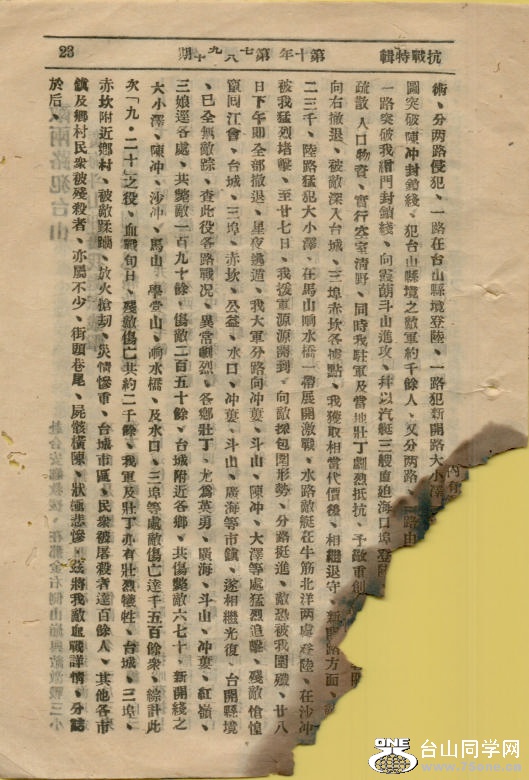 抗戰特輯
第十年第七八九十期
23
術、分两路侵犯、一路在台山縣境登陸、一路犯新開路大小澤
圖突破陳冲封鎖綫、犯台山縣境之敵軍約千餘人、又分两路、一路由
一路突破我閘門封鎖綫、向霞葫斗山進攻、拜以汽艇三艘直迫海口埠登陸
疏散人口物資、實行空室清野、同時我駐軍及當地壯丁劇烈抵抗、予敵重創
向右撤退、被敵深入台城、三埠赤坎各據點、我獲取相當代價後、相繼退守、新開路方面、
二三千、陸路猛犯大小澤、在馬山响水橋一帶展開激戰、水路敵艇在牛筋北洋两處登陸、在沙冲
被我猛烈堵擊、至廿七日、我援軍源源開到、向敵採包圍形勢、分路挺進、敵恐被我圍殲、廿八
日下午即全部撤退、星夜逃遁、我大軍分路向冲蒌、斗山、陳冲、大澤等處猛烈追擊、殘敵愴惶
竄囘江會、台城、三埠、赤坎、公益、水口、冲蒌、斗山、廣海等市鎮、遂相繼光復、台開縣境
、已全無敵踪、查此役各路戰况、異常劇烈、各鄉壯丁、尤為英勇、廣海、斗山、冲蒌、紅嶺、
三娘逕各處、共斃敵一百九十餘、傷敵二百五十餘、台城附近各鄉、共傷斃敵六七十、新開綫之
大小澤、陳冲、沙冲、馬山、學堂山、响水橋、及水口、三埠等處敵傷亡達千五百餘衆、綜計此
次「九・二十」之役、血戰旬日、殘敵傷亡共約二千餘、我軍及壯丁亦有壯烈犧牲、台城、三埠、
赤坎附近鄉村、被敵蹂躪、放火搶劫、災情慘重、台城市區、民衆被屠殺者達百餘人、其他各市
鎮及鄉村民衆被殘殺者、亦屬不少、街頭巷尾、屍骸橫陳、狀極悲慘、茲將我敵血戰詳情、分誌
於后、
ONE
台山同学网